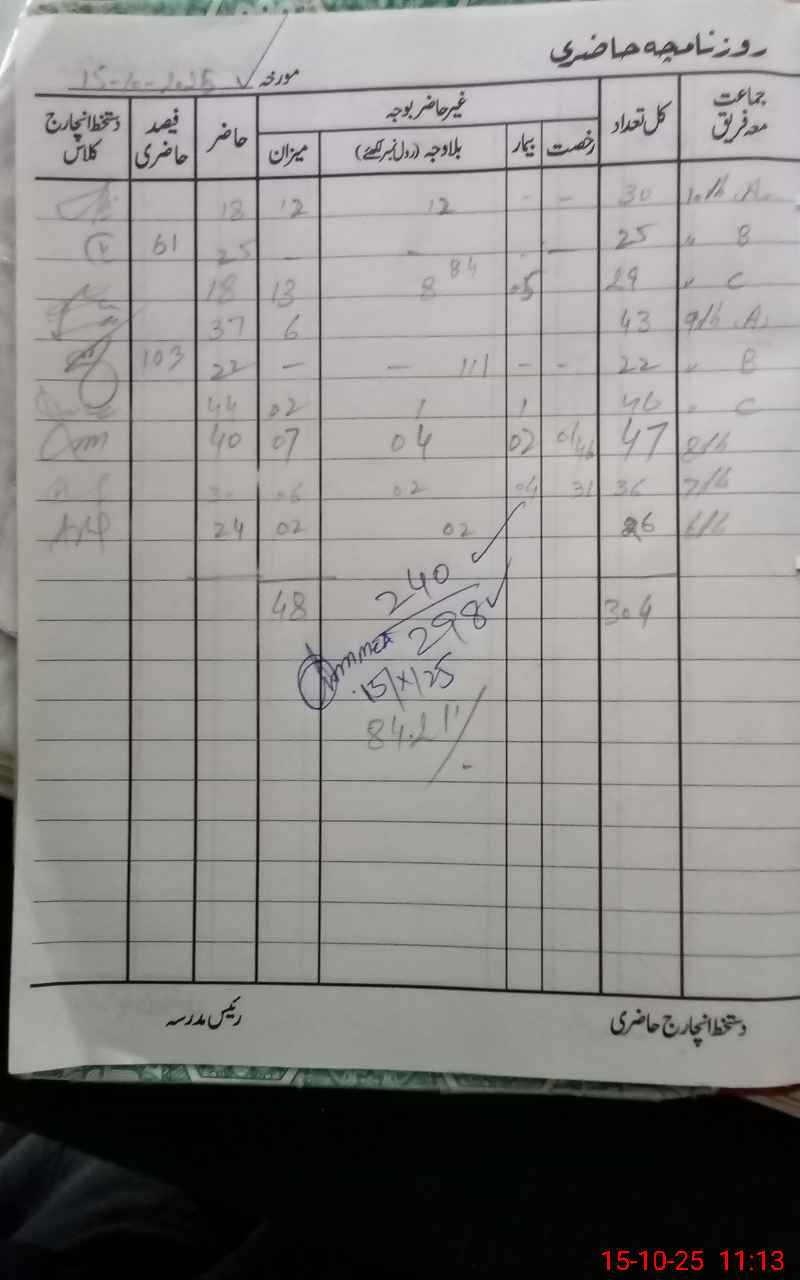 روزنامچہ حاضری
مورخہ 15-10-2025
جماعت معہ فریق کل تعداد غیر حاضر بوجہ حاضر فیصد حاضری دستخط انچارج کلاس
رخصت بیمار بلاوجہ (رول نمبر لکھئے) میزان
10th A 30 - - 12 12 18
" B 25 — - - — 25 61
" C 29 05 8 13 18
84
9th A 43 6 37
" B 22 - - — — 22 103
111
" C 46 1 1 02 44
8th 47 01/46 02 04 07 40
7th 36 31 04 02 06 30
6th 26 02 02 24
304 48
240
298
15/X/25
84.2
دستخط انچارج حاضری رئیس مدرسہ
15-10-25 11:13